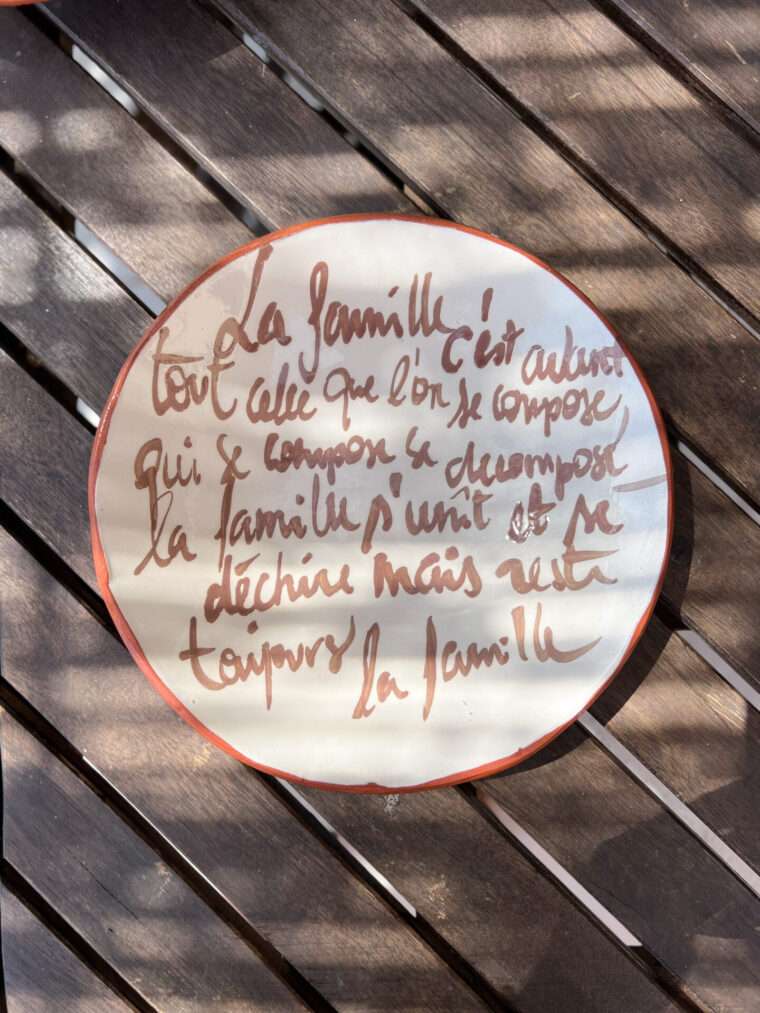 La famille c'est autant
tout celle que l'on se compose
qui se compose se decompose
la famille s'unit et se
déchire mais reste
toujours la famille